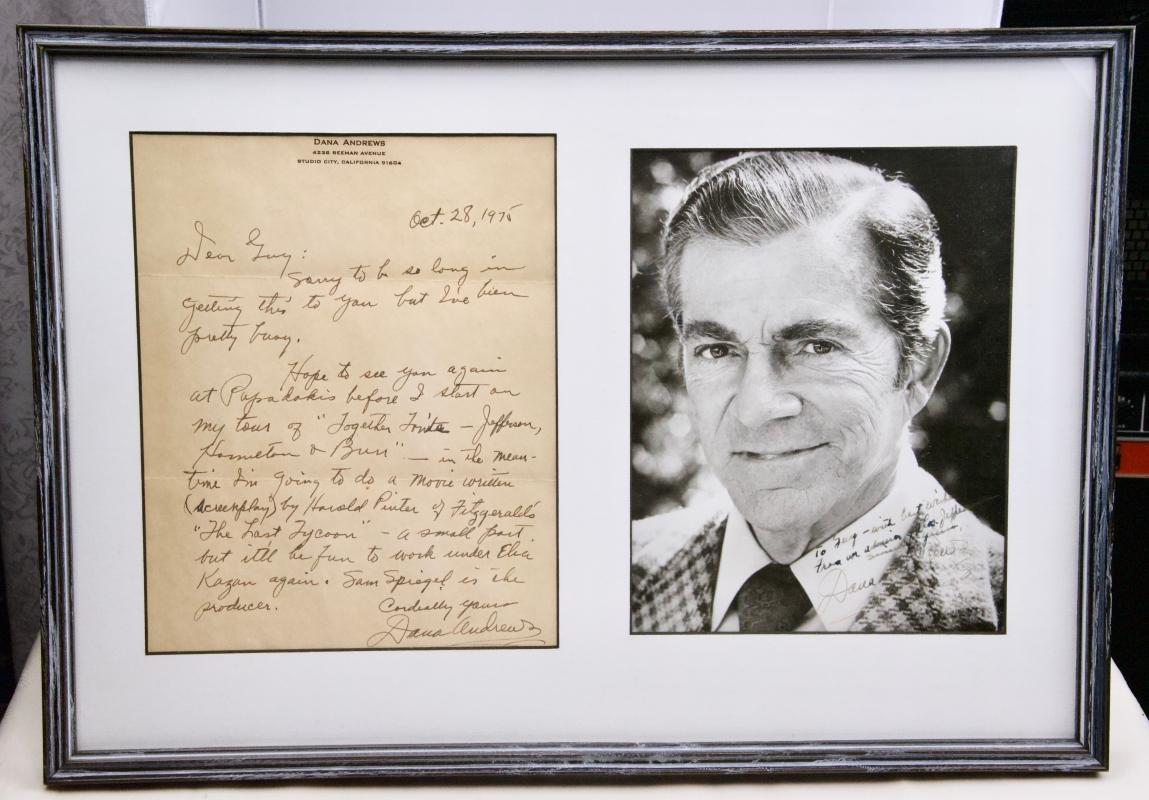 DANA ANDREWS
4238 BEEMAN AVENUE
STUDIO CITY, CALIFORNIA 91604
Oct. 28, 1975
Dear Guy:
Sorry to be so long in
getting this to you but I've been
pretty busy.
Hope to see you again
at Papadakis before I start on
my tour of "Together Tonite — Jefferson,
Hamilton & Burr" — in the mean-
time I'm going to do a movie written
(screenplay) by Harold Pinter of Fitzgerald's
"The Last Tycoon" — a small part
but it'll be fun to work under Elia
Kazan again. Sam Spiegel is the
producer.
Cordially yours
Dana Andrews
To Guy — with best wishes
from
Dana